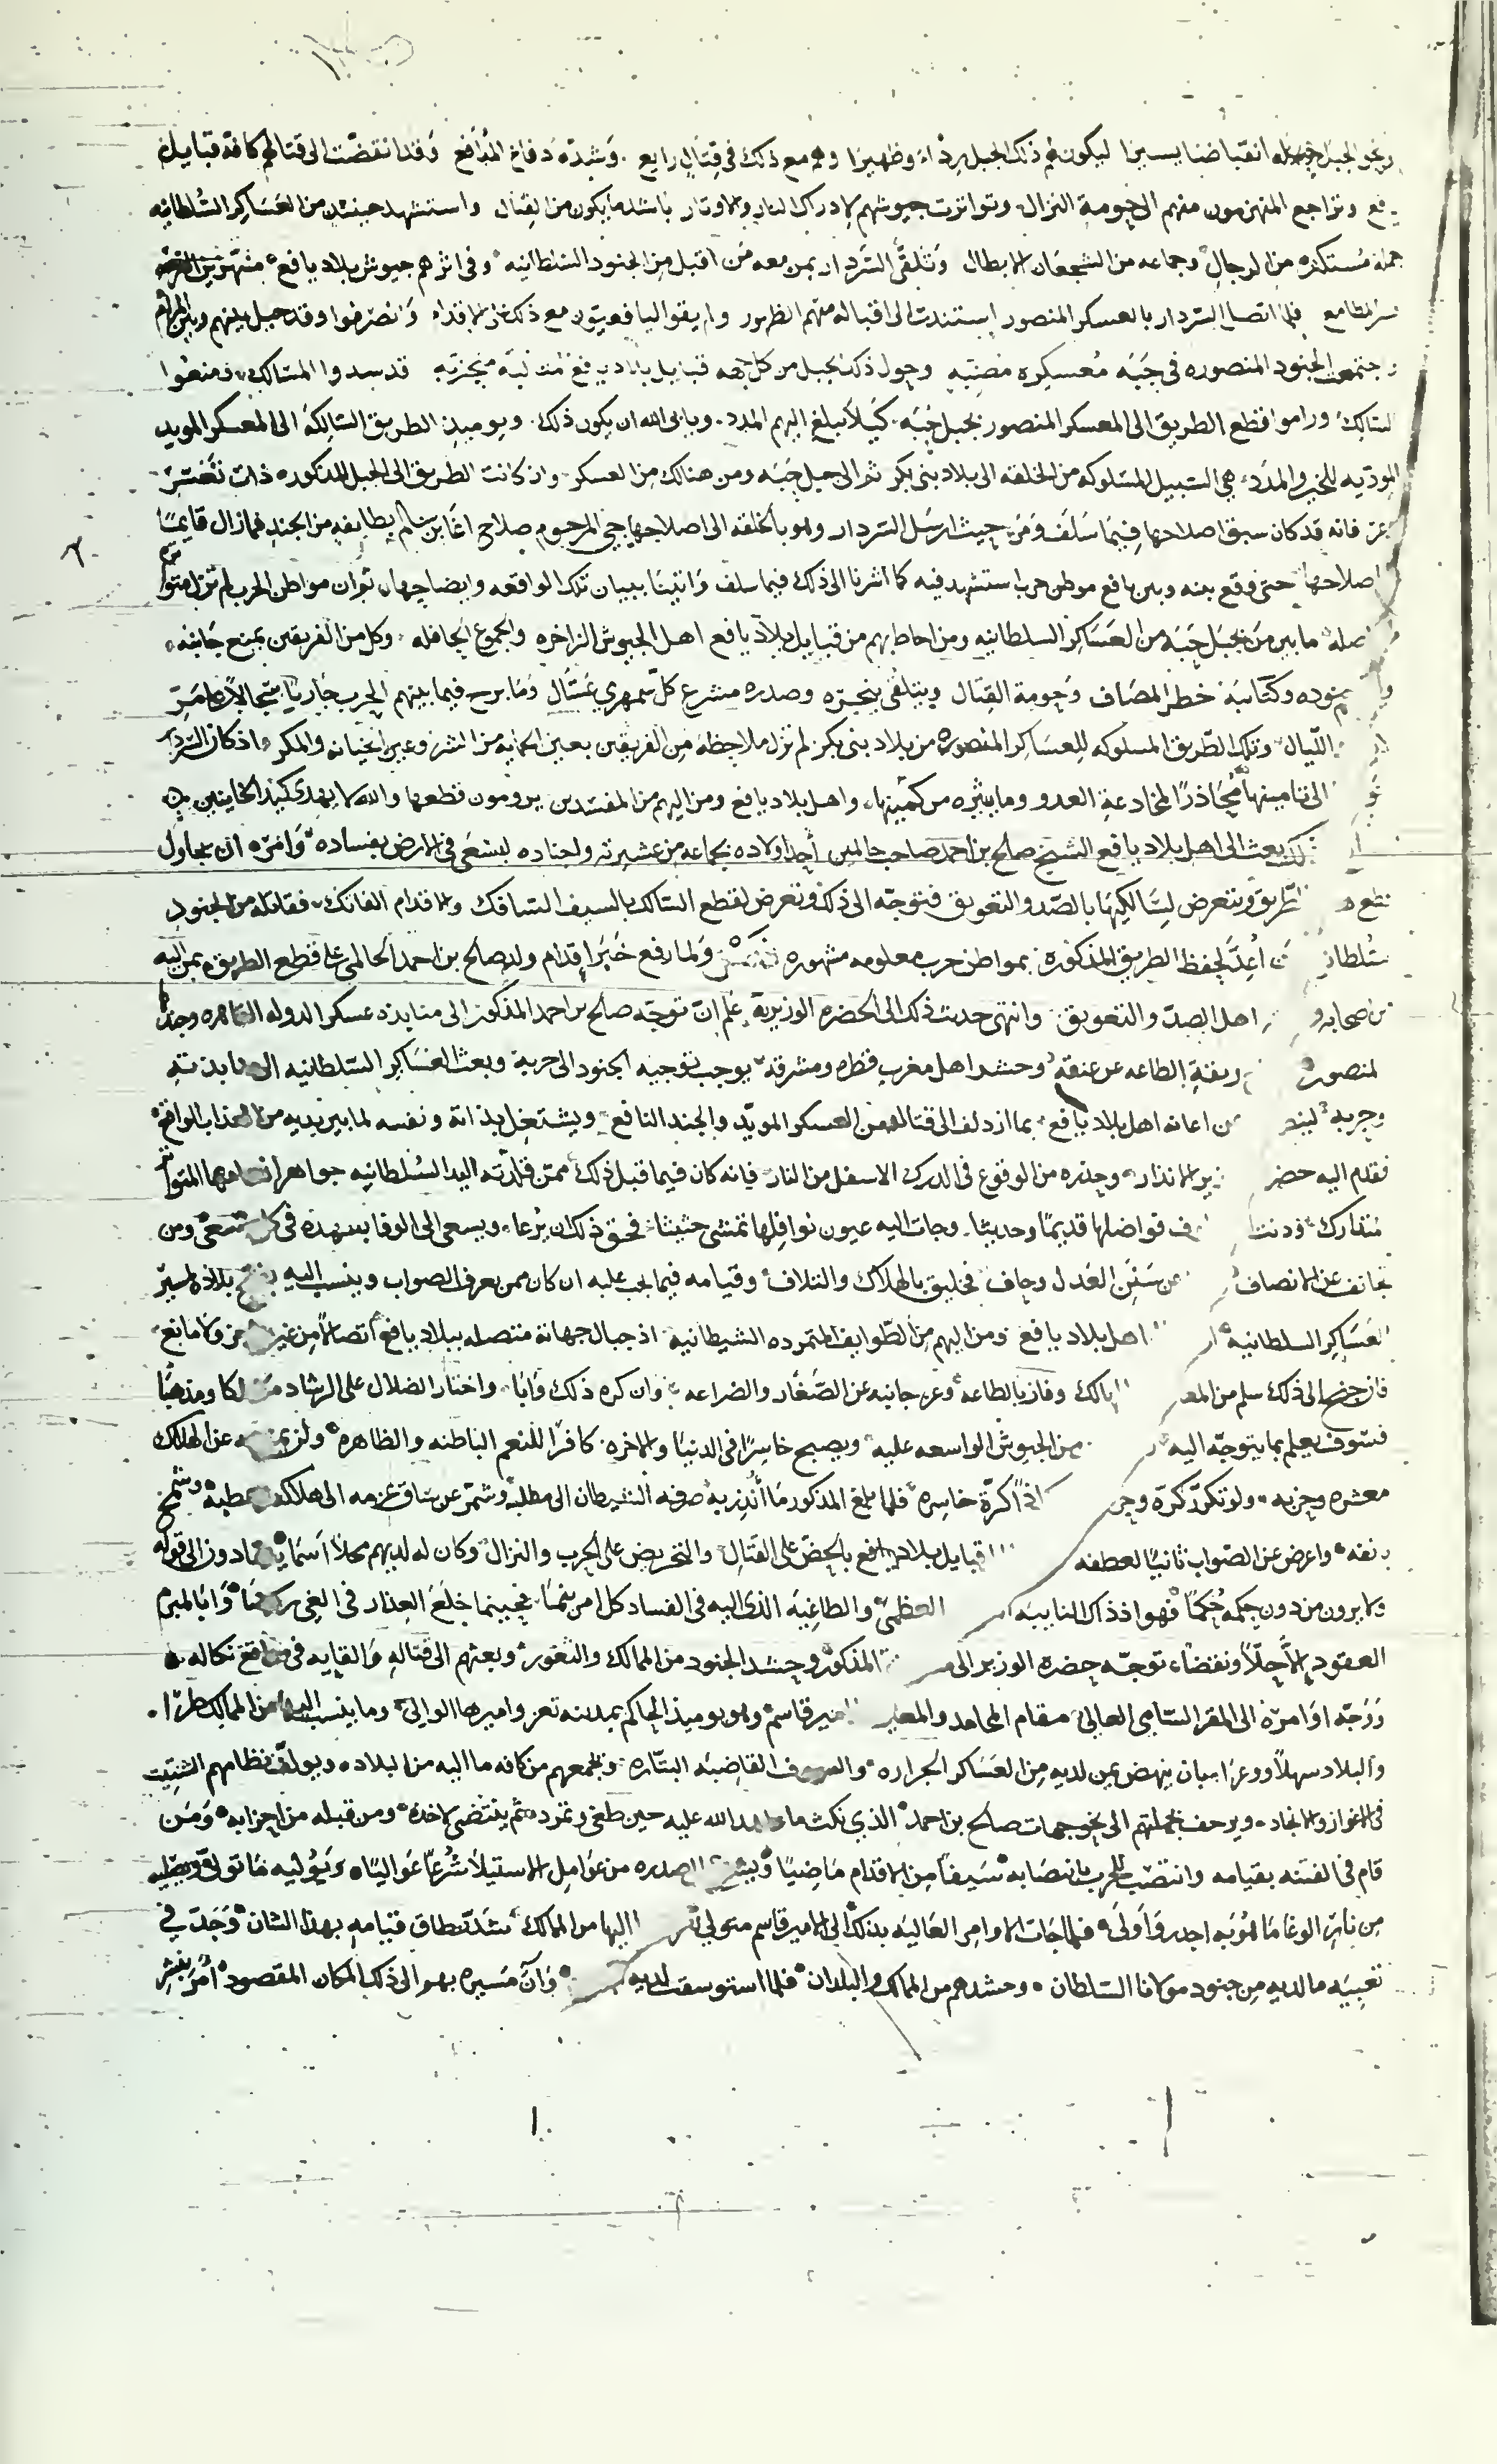 ونحو الجبل انقباضا يسيرا ليكون لهم ذلك الجبل ردًاء وظهيرا وهم مع ذلك في قتال رايع وشده دفاع المدافع وقد انقضت الى قتالهم كافة قبايل
يافع وتراجع المنهزمون منهم الى حومة النزال وتواترت جيوشهم لادراك الثار والاوتار باشد ما يكون من القتال واستشهد حينئذ من العساكر السلطانيه
جمله مستكثره من الرجال وجماعه من الشجعان الابطال وتلقى السردار بمن معه من اقبل من الجنود السلطانيه وفي اثرهم جيوش بلاد يافع منتهزين
المطامع فلما اتصل السردار بالعسكر المنصور استندت الى اقباله منهم الظهور ولم يقو اليافعيون مع ذلك على الاقدام وانصرفوا وقد حيل بينهم وبين المرام
واجتمعت الجنود المنصوره في حَبَه معسكره مضنيه وحول ذلك الجبل من كل جهه قبايل بلاد يافع متحزبه قد سدوا المسالك ومنعوا
السالك وراموا قطع الطريق الى المعسكر المنصور بجبل حَبَه كيلا يبلغ اليهم المدد ويابى الله ان يكون ذلك ويوميذ الطريق السالكه الى المعسكر المويد
الموديه للخبر والمدد هي السبيل المسلوكه من الخلقه الى بلاد بنى بكر ثم الى جبل حَبَه ومن هنالك من العسكر واذ كانت الطريق الى الجبل المذكوره ذات تعسر
فانه قد كان سبق اصلاحها فيما سلف ومر حيث ارسل السردار وهو بالخلقه الى اصلاحها المرحوم صلاح اغا بن سالم بطايفه من الجند فما زال قايما
اصلاحها حتى وقع بينه وبين يافع موطن حرب استشهد فيه كما اشرنا الى ذلك فيما سلف واتينا ببيان تلك الواقعه وايضاحها ثم ان مواطن الحرب لم تزل متوا
صله ما بين من بجبل حَبَه من العساكر السلطانيه ومن احاط بهم من قبايل بلاد يافع اهل الجيوش الزاخره والجموع الحافله وكل من الفريقين يمنع جانبه
جنوده وكتايبه خطر المصاف وحومة القتال ويتلقى بنحره وصدره مشرع كل سمهري عسال وما برح فيما بينهم الحرب جاريا سجالا
الليال وتلك الطريق المسلوكه للعساكر المنصوره من بلاد بنى بكر لم تزل ملاحظه من الفريقين بعين الحمايه من الشر وعين الخيانه والمكر اذ كان السردار
الى تامينها محاذرًا لمخادعة العدو وما يثيره من كمينها واهل بلاد يافع ومن اليهم من المفسدين يرومون قطعها والله لا يهدى كيد الخاينين
بعث الى اهل بلاد يافع الشيخ صالح بن احمد صاحب حالمين احد اولاده بجماعه من عشيرته واجناده ليسعى في الارض بفساده وامره ان يحاول
قطع الطريق ويتعرض لسالكيها بالصد والتعويق فتوجه الى ذلك وتعرض لقطع السالك بالسيف السافك والاقدام الفاتك فقاتله من الجنود
السلطانيه من اُعِدَّ لحفظ الطريق المذكوره بمواطن حرب معلومه مشهوره ولما رفع خبر اقدام ولد صالح بن احمد الحالمى على قطع الطريق بمن اليه
من اصحابه و اهل الصد والتعويق وانتهى حديث ذلك الى الحضره الوزيرية علم ان توجه صالح بن احمد المذكور الى منابذة عسكر الدوله القاهره
المنصوره ربقة الطاعه عن عنقه وحشد اهل مغرب قطره ومشرقه يوجب توجيه الجنود الى حربه وبعث العساكر السلطانيه الى منابذته
وحربه عن اعانه اهل بلاد يافع بما ازدلف الى قتالهم من العسكر المويد والجند النافع ويشتغل بذاته ونفسه لما بين يديه من العذاب الواقع
فقدم اليه حضره الانذار وحذره من الوقوع في الدرك الاسفل من النار فانه كان فيما قبل ذلك ممن قلدته اليد السلطانيه جواهر
فواضلها قديما وحديثا وجات اليه عيون نوافلها تمشي حثيثا فحق ذلك ان يرعا ويسعى الى الوفا بعهده في كل مسعى ومن
تجانف عن الانصاف عن سنن العدل وحاف فخليق بالهلاك والتلاف وقيامه فيما يجب عليه ان كان ممن يعرف الصواب وينسب اليه بلاده لمسير
العساكر السلطانيه اهل بلاد يافع ومن اليهم من الطوايف المتمرده الشيطانيه اذ جبال جهاته متصله ببلاد يافع اتصالا من غير ولا مانع
فان جنح الى ذلك سلم من وفاز بالطاعه وعز جانبه عن الصغار والضراعه وان كره ذلك وابا واختار الضلال على الرشاد ومذهبا
فسوف يعلم بما يتوجه اليه من الجيوش الواسعه عليه ويصبح خاسرا في الدنيا والاخره كافرا للنعم الباطنه والظاهره عن الهلاك
معشره وحزبه ولو تكرر كره كرة خاسره فلما بلغ المذكور ما انذر به صرفه الشيطان الى مطلبه وشمر عن ساق عزمه الى هلاكه وشمخ
بانفه واعرض عن الصواب ثانيا لعطفه قبايل بلاد يافع بالحض على القتال والتحريض على الحرب والنزال وكان له لديهم محلا
ولا يرون من دون حكمه حُكما فهو اذ ذاك النايبه العظمى والطاغيه الذى اليه في الفساد كل امر ينما فحينما خلع العذار في الغي وابا لمبرم
العقود الا حلا ونقضا توجه حضره الوزير الى المذكور وحشد الجنود من الممالك والثغور وبعثهم الى قتاله والقايه في نكاله
ووجه اوامره الى المقر السامى العالى مقام المحامد والمعالى الامير قاسم وهو يوميذ الحاكم بمدينه تعز واميرها الوالى وما ينسب اليها من الممالك طُرًّا
والبلاد سهلا ووعرا بان ينهض بمن لديه من العساكر الجراره والسيوف القاضبه البتاره ويجمعهم من كافه ما اليه من البلاد ويولف نظامهم الشتيت
في الاغوار والانجاد ويزحف بجملتهم الى نحو جهات صالح بن احمد الذي نكث ما عاهد الله عليه حين طغى وتمرد ثم ينتضى لاخذه ومن قبله من احزابه ومن
قام في الفتنه بقيامه وانتصب للحرب بانتصابه سيفا من الاقدام ماضيا صدره من عوامل الاستيلا شرعا عواليا ويوليه ما تولى
من نايره الوغا ما هو به اجدر واولى فلما جات الاوامر العاليه بذلك الى الامير قاسم متولي تعز اليها من الممالك شد نطاق قيامه بهذا الشان وجد في
تعبيه ما لديه من جنود مولانا السلطان وحشدهم من الممالك والبلدان فلما استوسقت لديه وان مسيره بهم الى ذلك المكان المقصود امر بنشر